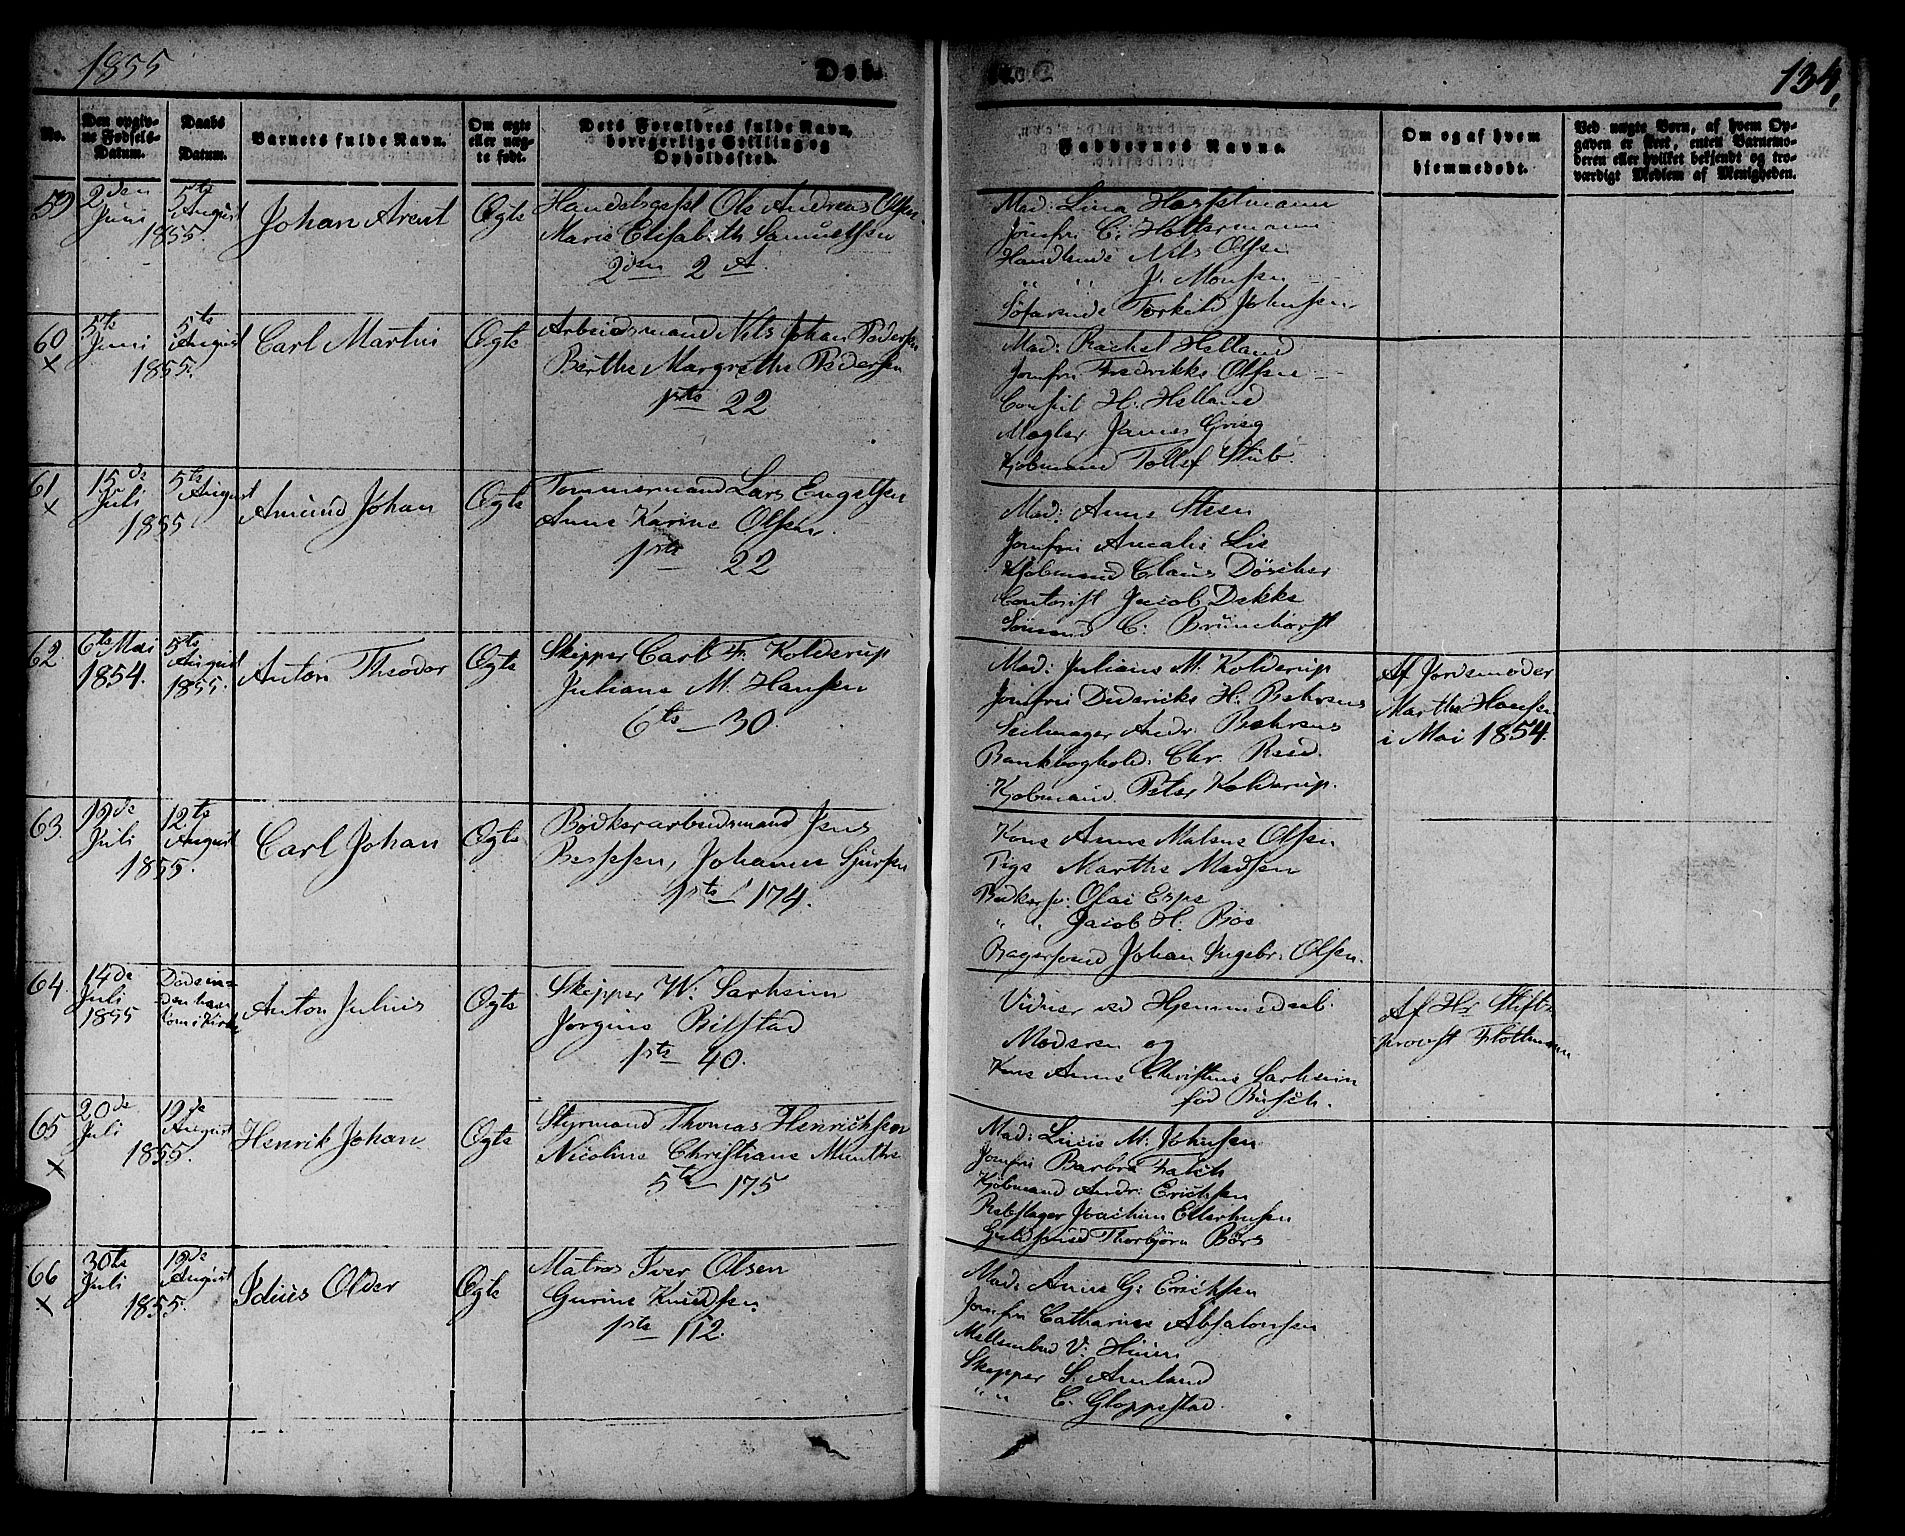 1855
Døb
134,
No.
Den opgiv-
ne Fødsels-
Datum.
Daabs
Datum.
Barnets fulde Navn.
Om ægte
eller uæg-
te født.
Dets Forældres fulde Navn,
borgerlige Stilling og
Opholdssted.
Faddernes Navne.
Om og af hvem
hjemmedøbt.
Ved uægte Børn, af hvem Op-
gaven er skeet, enten Barnemo-
deren eller hvilket bekjendt og tro-
værdigt Medlem af Menigheden.
59
2den
Juni
5te
August
1855.
Johan Arent
Ægte
Handelsgesl Ole Andreas Olsen
Marie Elisabeth Samuelsen
2den 2 A.
Mad: Lina Horstmann
Jomfru C: Holtermann
Handlende Nils Olsen
" " J. Monsen
Søfarende Torkild Johnsen
60
x
5te
Juni
5te
August
1855.
Carl Martin
Ægte
Arbeidsmand Nils Johan Pedersen
Berthe Margrethe Pedersen
1ste 22
Mad: Rachel Helland
Jomfru Fredrikke Olsen
Consul H: Helland
Mægler James Grieg
Kjøbmand Tollef Stub.
61
x
15de
Juli
5te
August
1855.
Amund Johan
Ægte
Tømmermand Lars Engelsen
Anne Karine Olsen,
1ste 22
Mad: Anne Steen
Jomfru Amalie Lie
Kjøbmand Claus Döscher
Contorist Jacob Dekke
Sömand C: Brünchorst
62
6te Mai
1854.
5te
August
1855.
Anton Theodor
Ægte
Skipper Carl Fr. Kolderup
Juliane M. Hansen
6te 30.
Mad: Juliane M. Kolderup
Jomfru Didericke H: Behrens
Seilmager Andr. Behrens
Bankboghold. Chr. Reed.
Kjøbmand Peter Kolderup.
Af Jordemoder
Marthe Hansen
i Mai 1854.
63.
12de
Juli
12te
August
1855.
Carl Johan
Ægte
Bødkerarbeidsmand Jens
Bessesen, Johanne Sjursen
1ste 174.
Kone Anne Malene Olsen
Pige Marthe Madsen
Bødkersv: Olai Espe
" " Jacob H. Bøe
Bagersvend Johan Ingebr. Olsen.
64.
14de
Juli
1855
Døde in-
den han
kom i Kirke
Anton Julius
Ægte
Skipper W. Sarheim
Jorgine Bilstad
1ste 40.
Vidner ved Hjemmedaab.
Moderen og
Kone Anne Christine Sarheim
fød Büsch.
Af Hr Stifts-
provst Flottmann
65
x
20de
Juli
12de
August
1855.
Henrik Johan
Ægte
Styrmand Thomas Henrichsen
Nicoline Christiane Munthe
5te 175
Mad: Lucie M. Johnsen
Jomfru Barbra Falch
Kjøbmand Andr: Erichsen
Rebslager Joachim Ellerhusen
Guldsmed Thorbjørn Börs
66
x
30te
Juli
12de
August
1855.
Idius Older
Ægte
Matros Iver Olsen
Gurine Knudsen.
1ste 112.
Mad: Anne G: Erichsen
Jomfru Catharine Absalonsen
V:
Skipper S. Amland
" " C. Gloppestad.